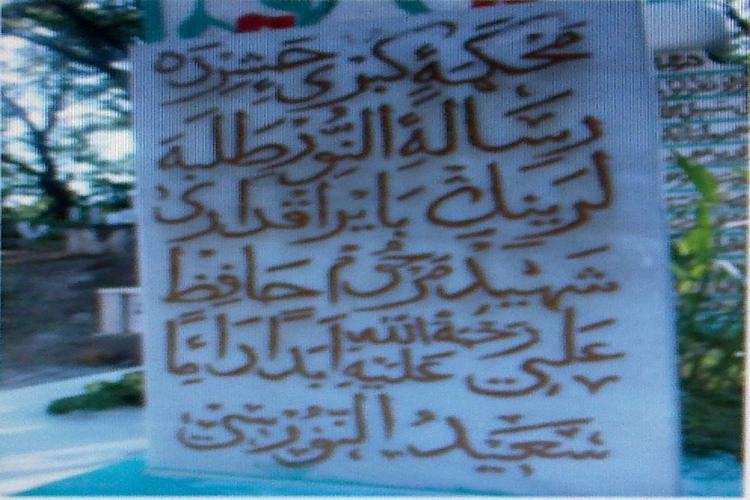 مَحْكَمَۀِ كُبْرٰيِ حَشِرْدَه
رِسَالَۀِ النُّورْ طَلَبَه
لَرِينِكْ بَايْرَاقْدَارِى
شَهِيدْ مَرْحُومْ حَافِظْ
عَلِى رَحْمَةُ اللّٰهِ عَلَيْهِ اَبَدًا دَائِمًا
سَعِيدُ النُّورْسِى